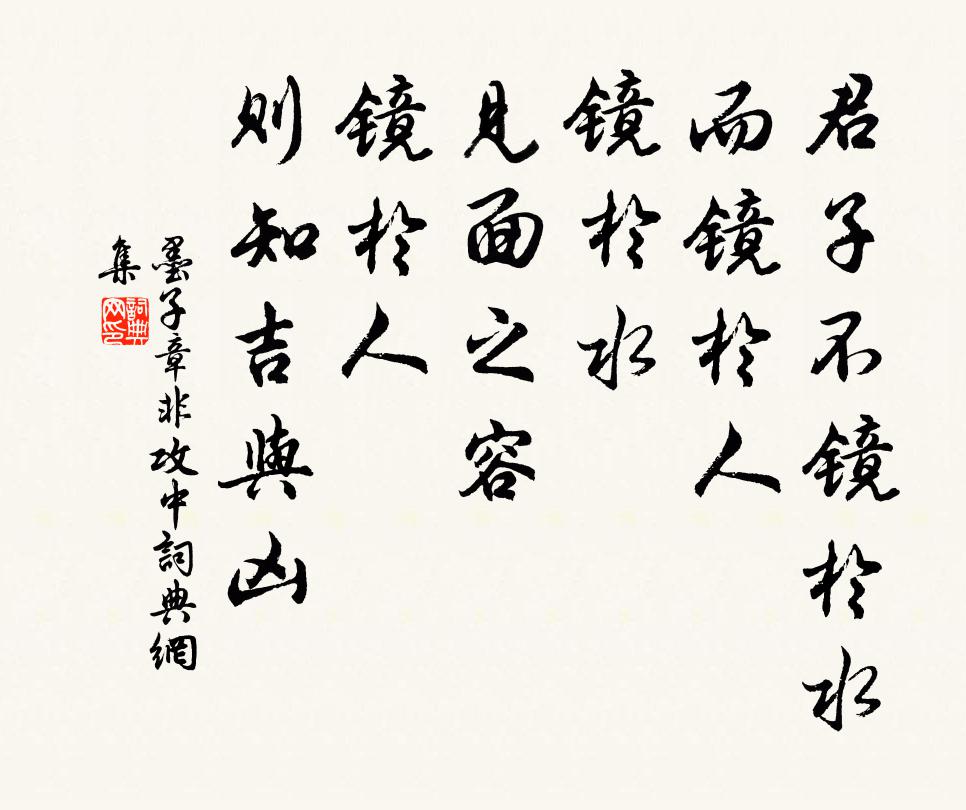 君子不镜於水
而镜於人
镜於水
見面之容
镜於人
則知吉與凶
墨子章非攻中詞典網
集
詞典网印